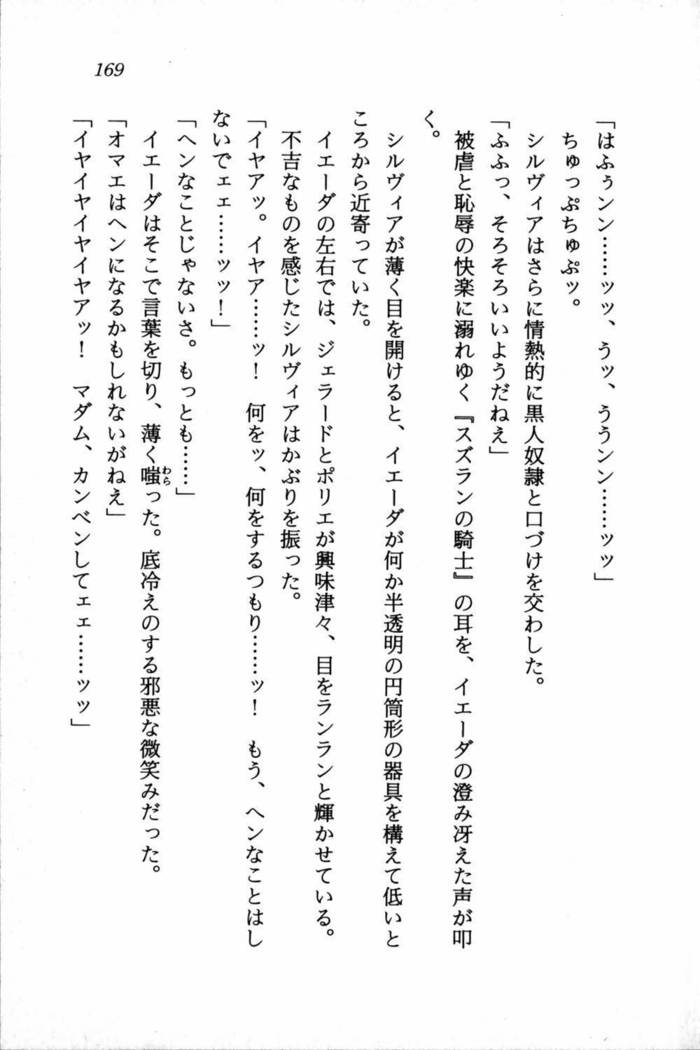 169
「はふぅンン……ッッ、うッ、ううンン……ッッ」
ちゅっぷちゅぷッ。
シルヴィアはさらに情熱的に黒人奴隷と口づけを交わした。
「ふふっ、そろそろいいようだねえ」
被虐と恥辱の快楽に溺れゆく『スズランの騎士』の耳を、イエーダの澄み冴えた声が叩
く。
シルヴィアが薄く目を開けると、イエーダが何か半透明の円筒形の器具を構えて低いと
ころから近寄っていた。
イエーダの左右では、ジェラードとポリエが興味津々、目をランランと輝かせている。
不吉なものを感じたシルヴィアはかぶりを振った。
「イヤアッ。イヤア……ッ！　何をッ、何をするつもり……ッ！　もう、ヘンなことはし
ないでェェ……ッッ！」
「ヘンなことじゃないさ。もっとも……」
イエーダはそこで言葉を切り、薄く嗤った。底冷えのする邪悪な微笑みだった。
わら
「オマエはヘンになるかもしれないがねえ」
「イヤイヤイヤイヤアッ！　マダム、カンベンしてェェ……ッッ」